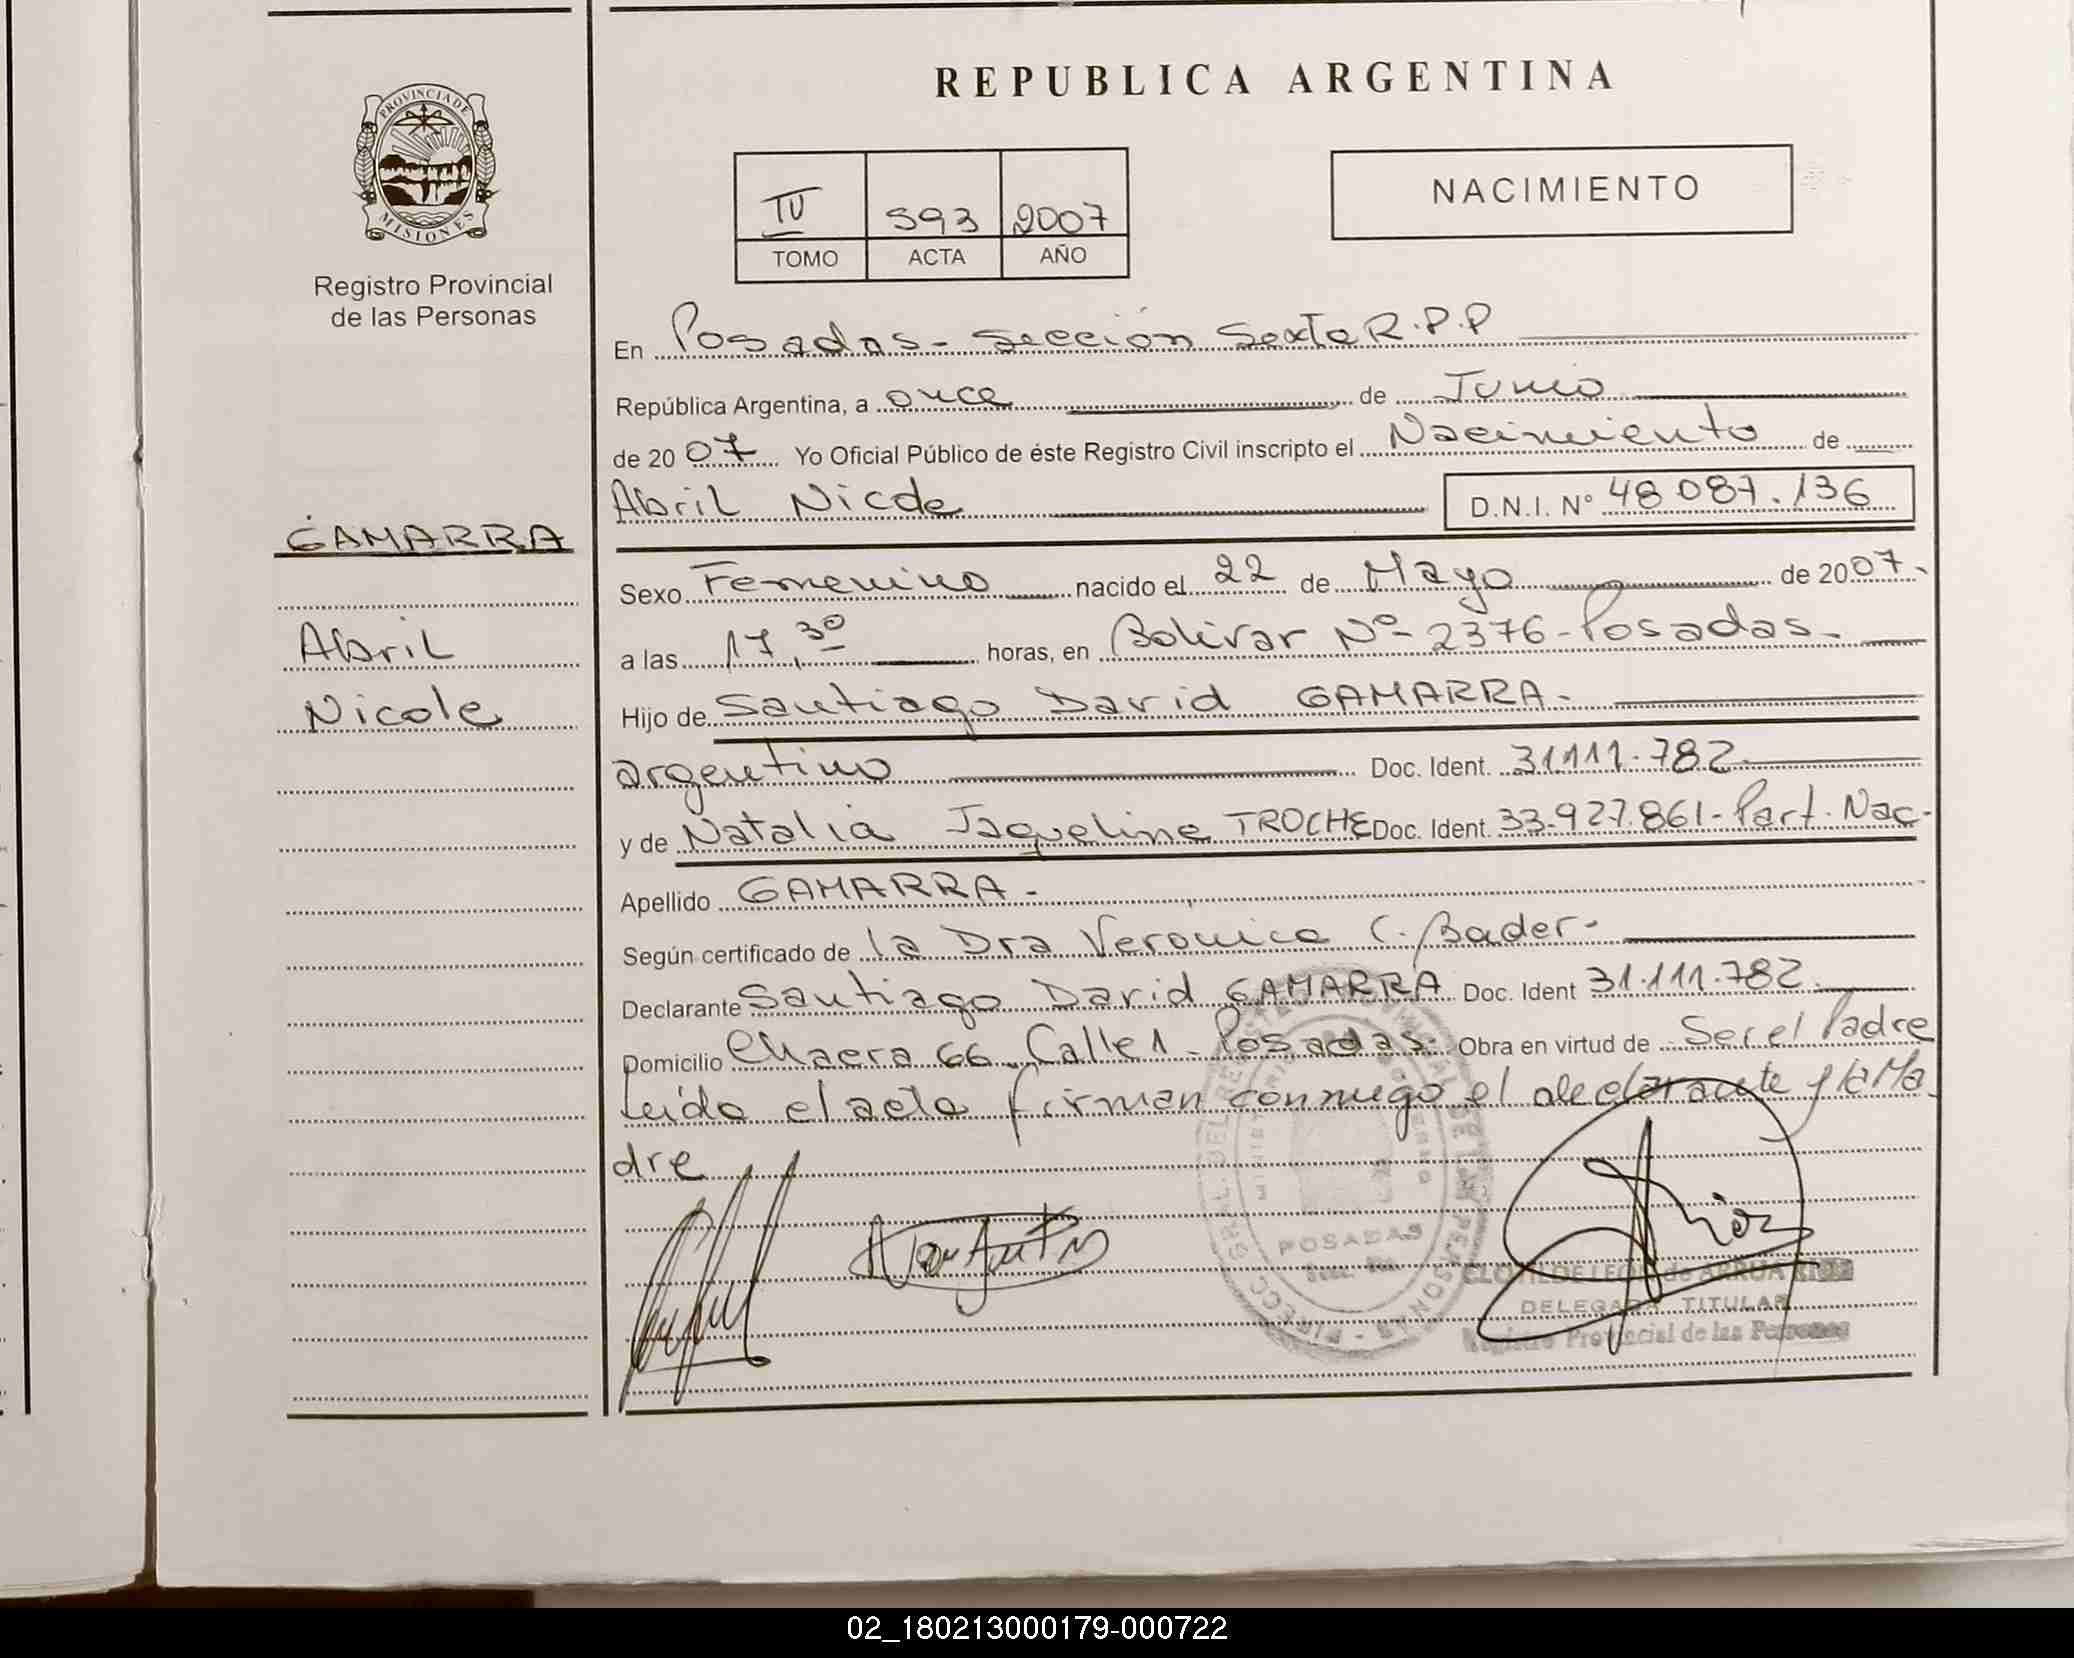 REPUBLICA ARGENTINA
PROVINCIA DE
MISIONES
Registro Provincial
de las Personas
IV 593 2007
TOMO ACTA AÑO
NACIMIENTO
En Posadas - Sección Sexta R.P.P
República Argentina, a once de Junio
de 2007 Yo Oficial Público de éste Registro Civil inscripto el Nacimiento de
Abril Nicole D.N.I. N° 48 087.136
GAMARRA
Abril
Nicole
Sexo Femenino nacido el 22 de Mayo de 2007.
a las 17,30 horas, en Bolivar Nº- 2376-Posadas.
Hijo de Santiago David GAMARRA.
argentino Doc. Ident. 31.111.782
y de Natalia Jaqueline TROCHE Doc. Ident. 33.927.861- Part. Nac.
Apellido GAMARRA.
Según certificado de la Dra Veronica C. Bader.
Declarante Santiago David GAMARRA Doc. Ident 31.111.782
Domicilio Chacra 66 Calle 1 - Posadas. Obra en virtud de Ser el Padre
Leída el acta firman conmigo el declarante y la Ma
dre
POSADAS
CLOTILDE LEON de ARRUA RIOS
DELEGADA TITULAR
Registro Provincial de las Personas
02_180213000179-000722